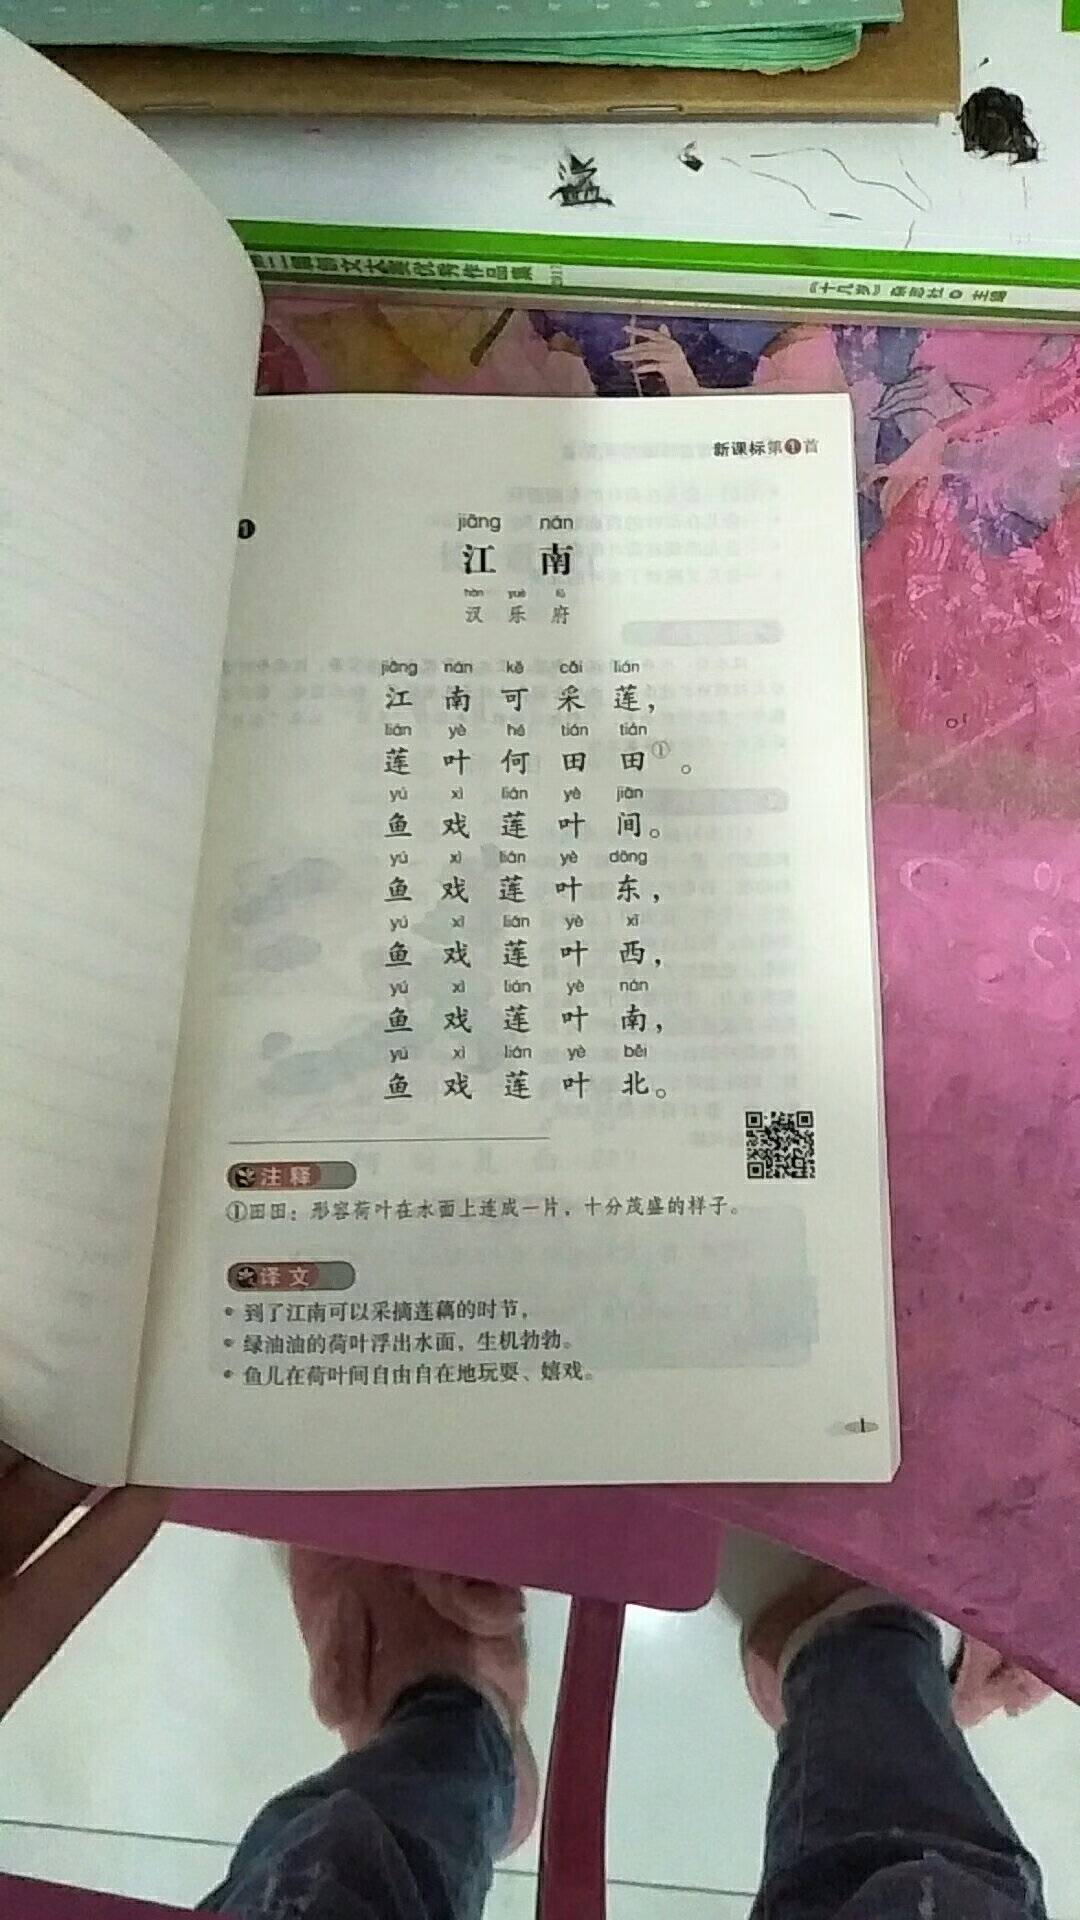 盗
二届创文大赛优秀作品集 2017
《十几岁》杂志社 主编
新课标第1首
1
jiāng nán
江 南
hàn yuè fǔ
汉 乐 府
jiāng nán kě cǎi lián
江 南 可 采 莲，
lián yè hé tián tián
莲 叶 何 田 田①。
yú xì lián yè jiān
鱼 戏 莲 叶 间。
yú xì lián yè dōng
鱼 戏 莲 叶 东，
yú xì lián yè xī
鱼 戏 莲 叶 西，
yú xì lián yè nán
鱼 戏 莲 叶 南，
yú xì lián yè běi
鱼 戏 莲 叶 北。
注释
①田田：形容荷叶在水面上连成一片，十分茂盛的样子。
译文
• 到了江南可以采摘莲藕的时节，
• 绿油油的荷叶浮出水面，生机勃勃。
• 鱼儿在荷叶间自由自在地玩耍、嬉戏。
1